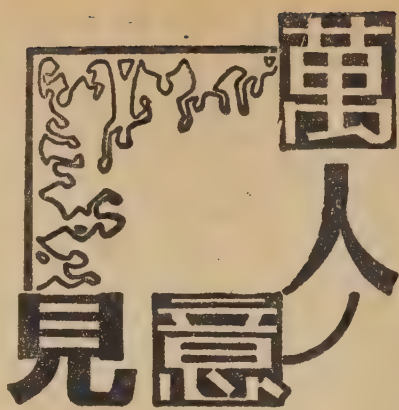 萬人ノ意見